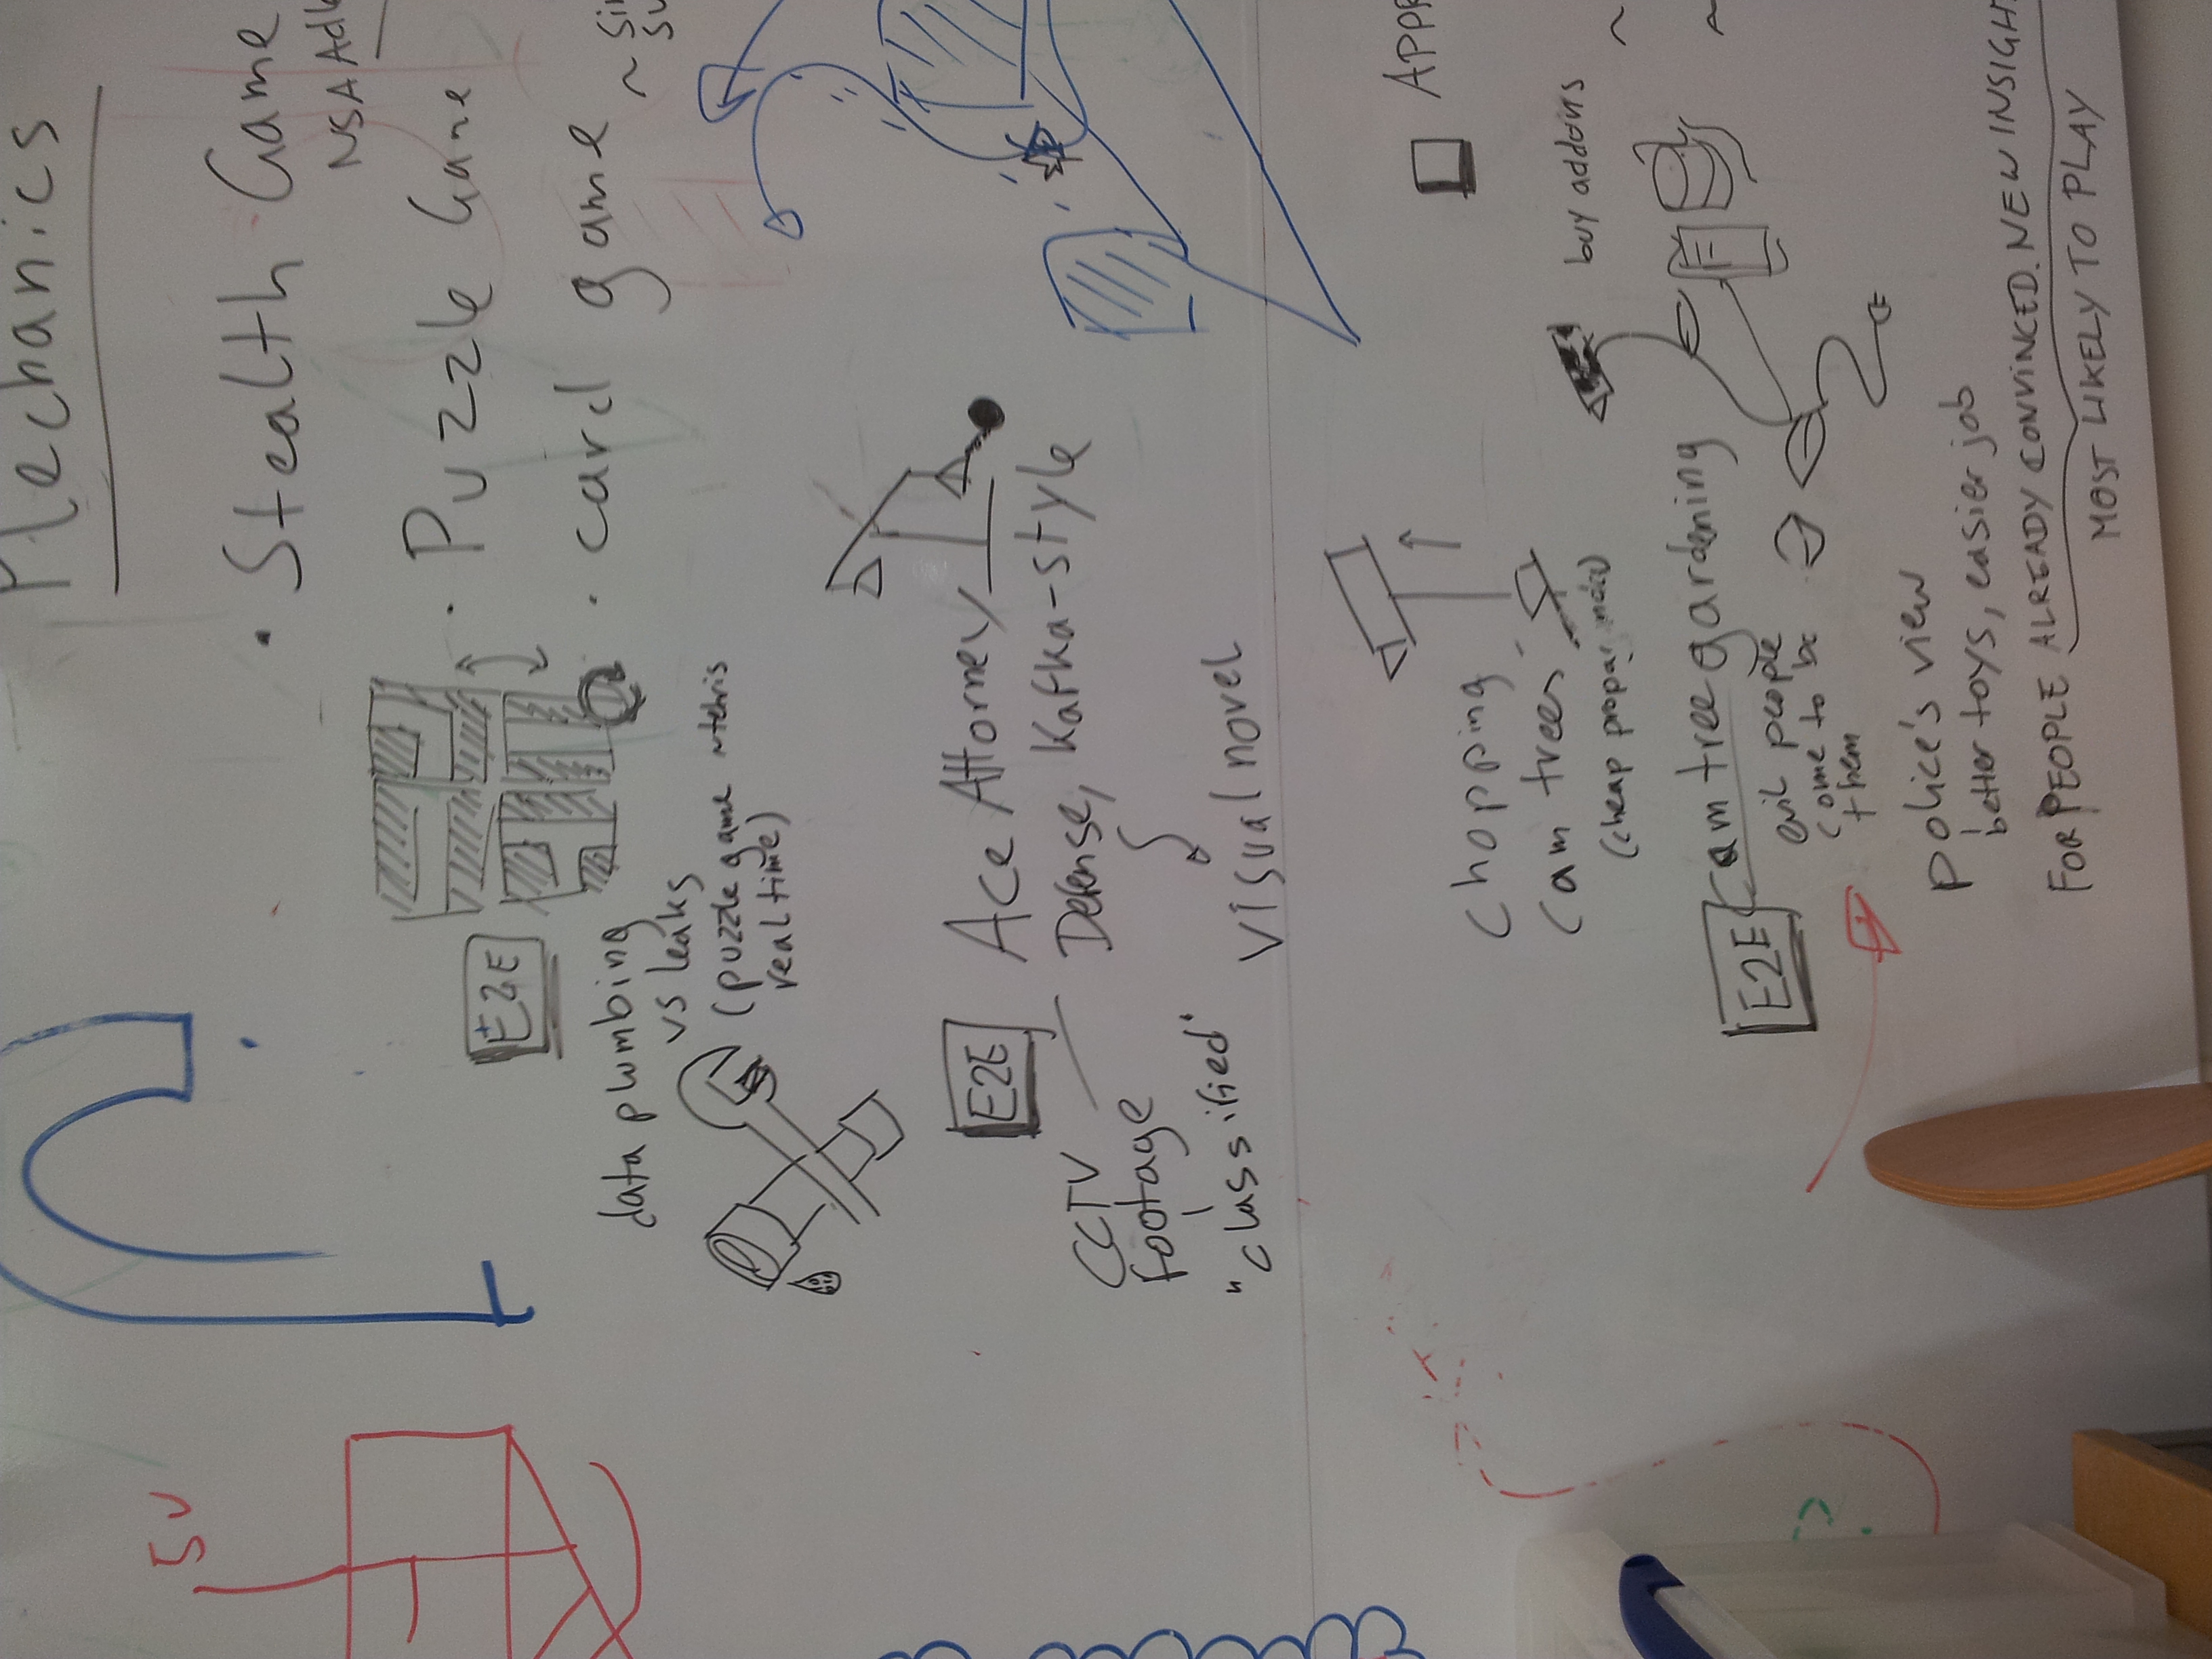 Mechanics
5V
• Stealth Game
NSA
• Puzzle Game
E2E
• card game
data plumbing
vs leaks
(puzzle game ~tetris
realtime)
E2E
Ace Attorney
Defense, Kafka-style
CCTV
footage
"classified"
visual novel
chopping
cam trees
(cheap
buy addons
E2E
cam tree gardening
evil people
come to be
them
police's view
better toys, easier job
FOR PEOPLE ALREADY CONVINCED. NEW INSIGH
MOST LIKELY TO PLAY